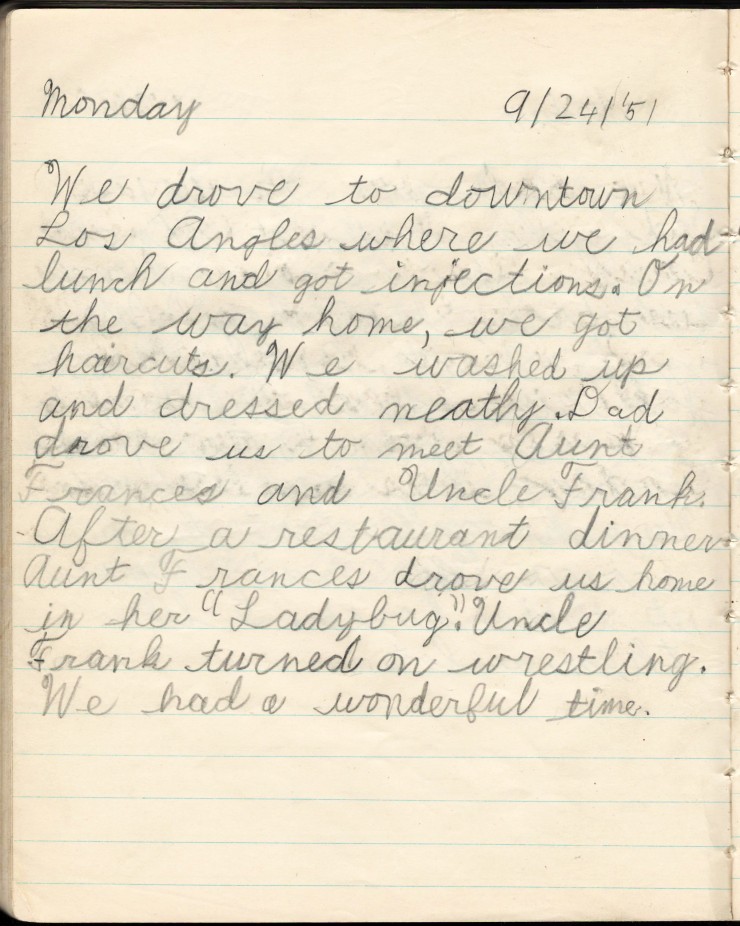 Monday 9/24/'51
We drove to downtown
Los Angles where we had
lunch and got injections. On
the way home, we got
haircuts. We washed up
and dressed neathy. Dad
drove us to meet Aunt
Frances and Uncle Frank.
After a restaurant dinner
Aunt Frances drove us home
in her "Ladybug". Uncle
Frank turned on wrestling.
We had a wonderful time.